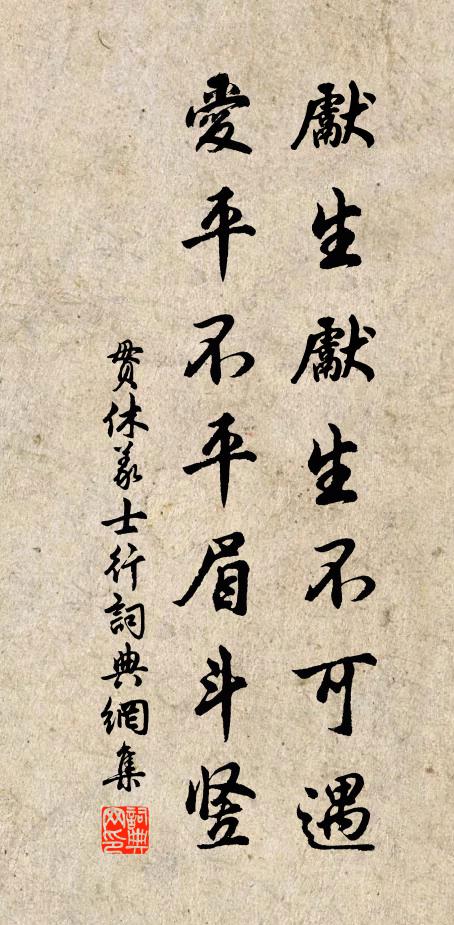 獻生獻生不可遇
愛平不平眉斗豎
貫休義士行詞典網集
詞典網印